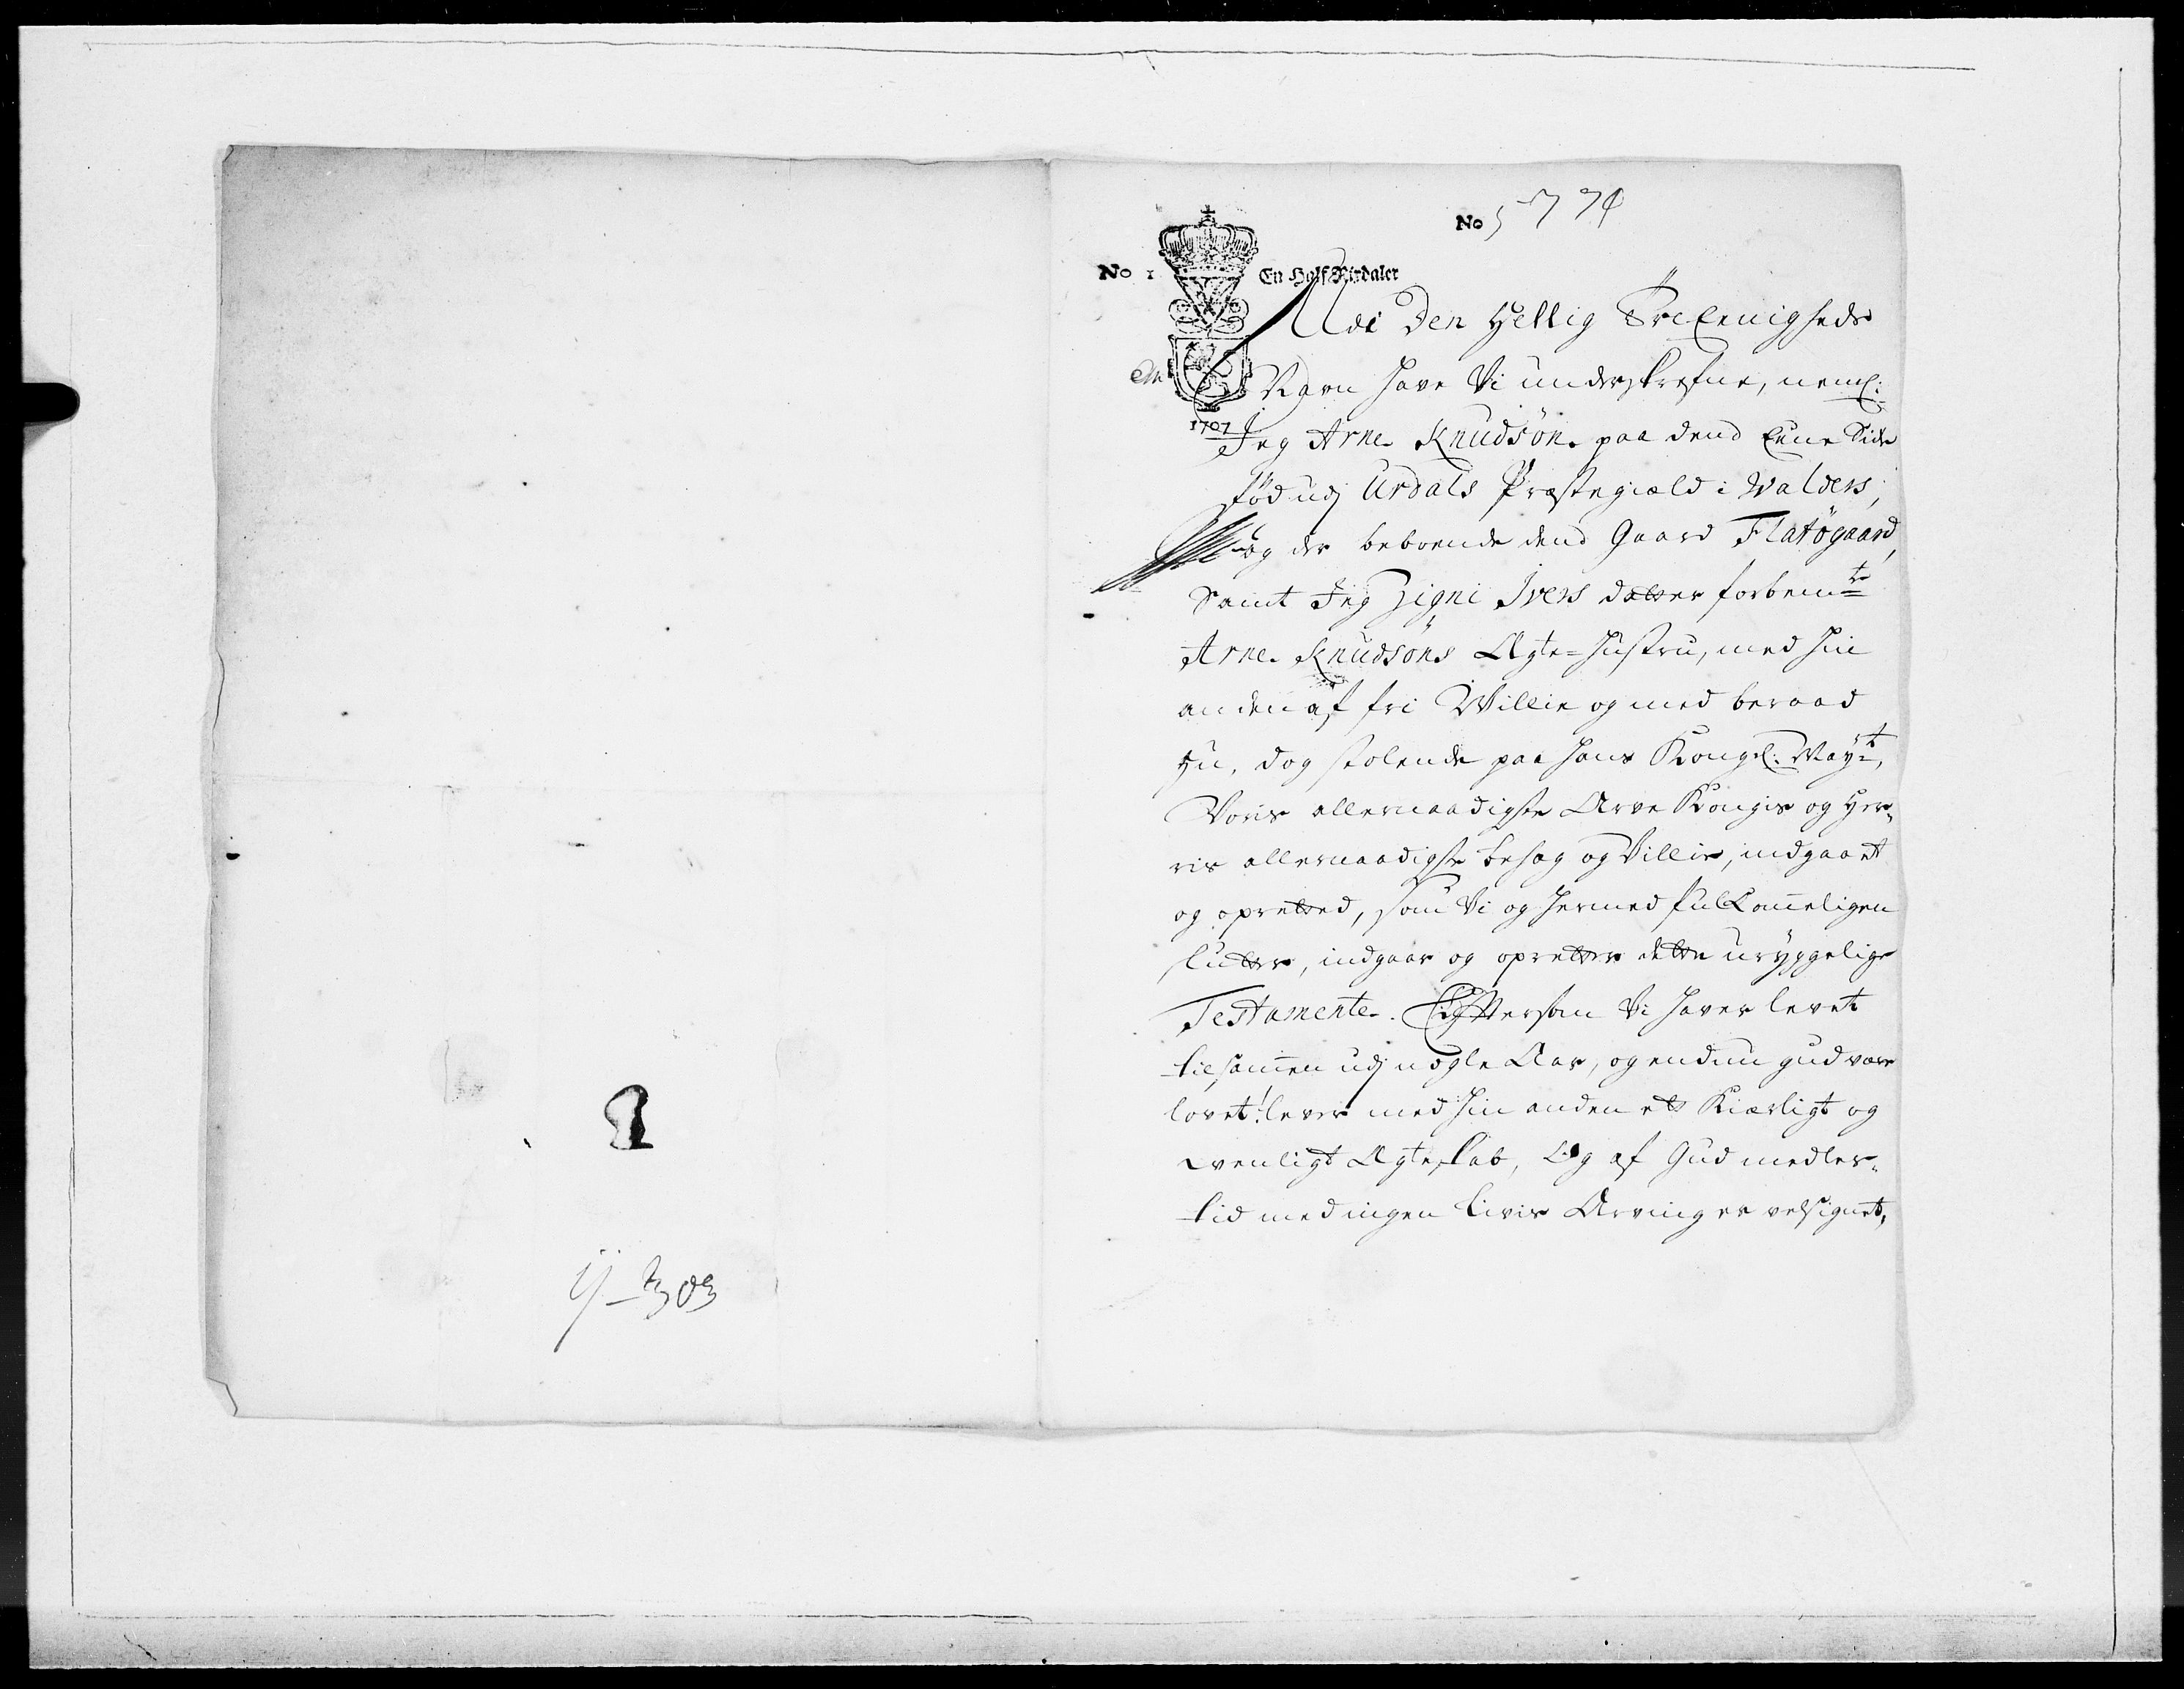 No 5774
No 1 En Half Rixdaler
Udi Den Hellig TreEenigheds
Nafn have Vi underskrefne, neml:
1707
Jeg Arne Knudsøn paa dend Eene Side
født udj Urdals Præstegiæld i Walders,
og der beboende dend Gaard Flatøgaard,
Samt Jeg Zigni Ivers datter forbemte
Arne Knudsøns Ægte-Hustru, med hin
anden af fri Willie og med beraad
Hu, dog stolende paa Hans Kongel: Mayt,
Voris allernaadigste Arve Kongis og Her-
ris allernaadigste behag og Villie, indgaaet
og oprettet, som Vi og hermed fuldkommeligen
slutter, indgaar og opretter dette uryggelige
Testamente. Eftersom Vi haver levet
tilsammen udj nogle Aar, og endnu gud være
lovet! lever med hin anden ett Kiærligt og
venligt Ægteskab, Og af Gud medler-
tid med ingen Livis Arvinger velsignet,
ij - 303